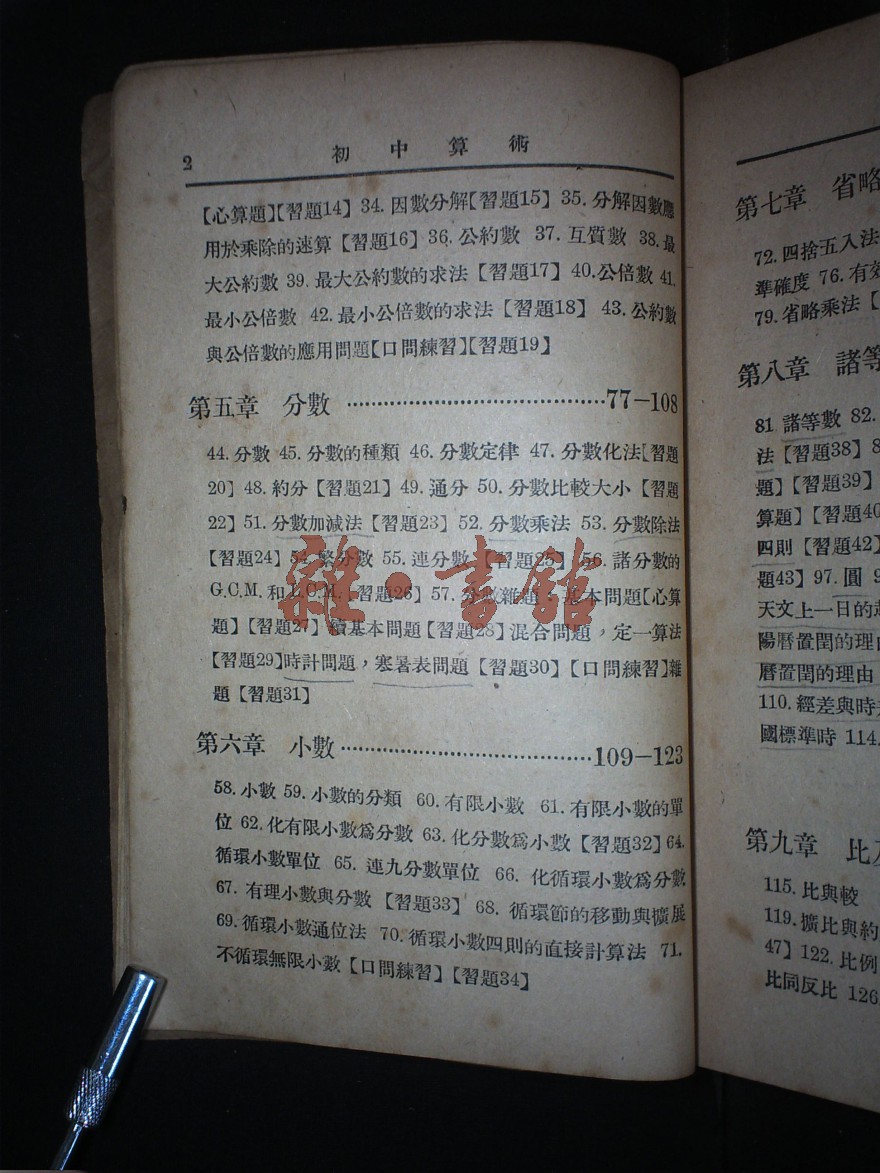 2
初中算術
【心算題】【習題14】 34. 因數分解【習題15】 35. 分解因數應
用於乘除的速算【習題16】 36. 公約數 37. 互質數 38. 最
大公約數 39. 最大公約數的求法【習題17】 40. 公倍數 41.
最小公倍數 42. 最小公倍數的求法【習題18】 43. 公約數
與公倍數的應用問題【口問練習】【習題19】
第五章 分數 ……………………………77—108
44. 分數 45. 分數的種類 46. 分數定律 47. 分數化法【習題
20】 48. 約分【習題21】 49. 通分 50. 分數比較大小【習題
22】 51. 分數加減法【習題23】 52. 分數乘法 53. 分數除法
【習題24】 54. 繁分數 55. 連分數【習題25】 56. 諸分數的
G.C.M. 和L.C.M.【習題26】 57. 分數雜題:基本問題【心算
題】【習題27】續基本問題【習題28】混合問題,定一算法
【習題29】時計問題,寒暑表問題【習題30】【口問練習】雜
題【習題31】
第六章 小數 ……………………………109—123
58. 小數 59. 小數的分類 60. 有限小數 61. 有限小數的單
位 62. 化有限小數爲分數 63. 化分數爲小數【習題32】 64.
循環小數單位 65. 連九分數單位 66. 化循環小數爲分數
67. 有理小數與分數【習題33】 68. 循環節的移動與擴展
69. 循環小數通位法 70. 循環小數四則的直接計算法 71.
不循環無限小數【口問練習】【習題34】
第七章 省略
72. 四捨五入法
準確度 76. 有效
79. 省略乘法【
第八章 諸等
81 諸等數 82.
法【習題38】 8
題】【習題39】
算題】【習題40
四則【習題42】
題43】 97. 圓 9
天文上一日的
陽曆置閏的理由
曆置閏的理由
110. 經差與時
國標準時 114.
第九章 比
115. 比與較
119. 擴比與約
47】 122. 比例
比同反比 126
雜·書館